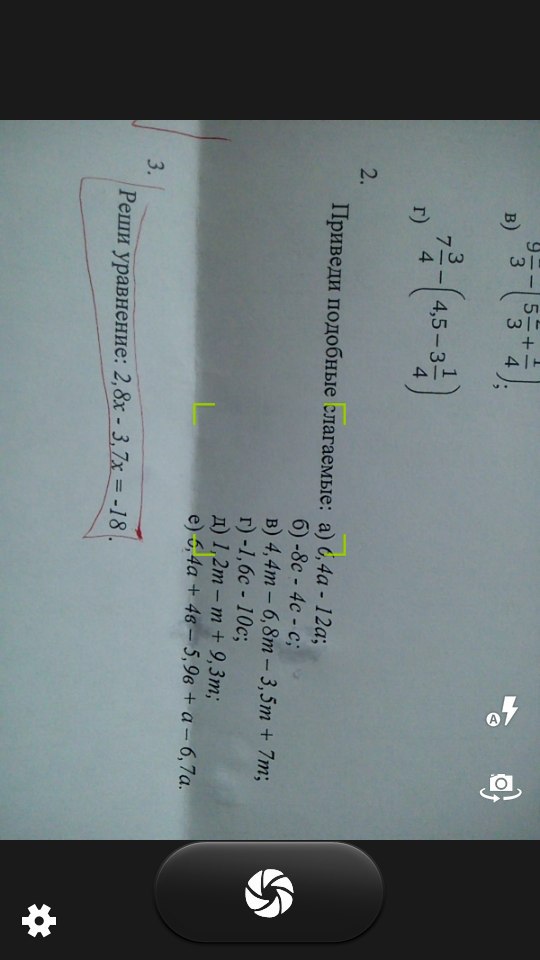 в) 9 /3 − (5 /3 + 1/4);
г) 7 3/4 − (4,5 − 3 1/4)
2.
Приведи подобные слагаемые: а) 6,4а - 12а;
б) -8с - 4с - с;
в) 4,4m – 6,8m – 3,5m + 7m;
г) -1,6с - 10с;
д) 1,2m – m + 9,3m;
е) 6,4а + 4в – 5,9в + а – 6,7а.
3.
Реши уравнение: 2,8х - 3,7х = -18.
A